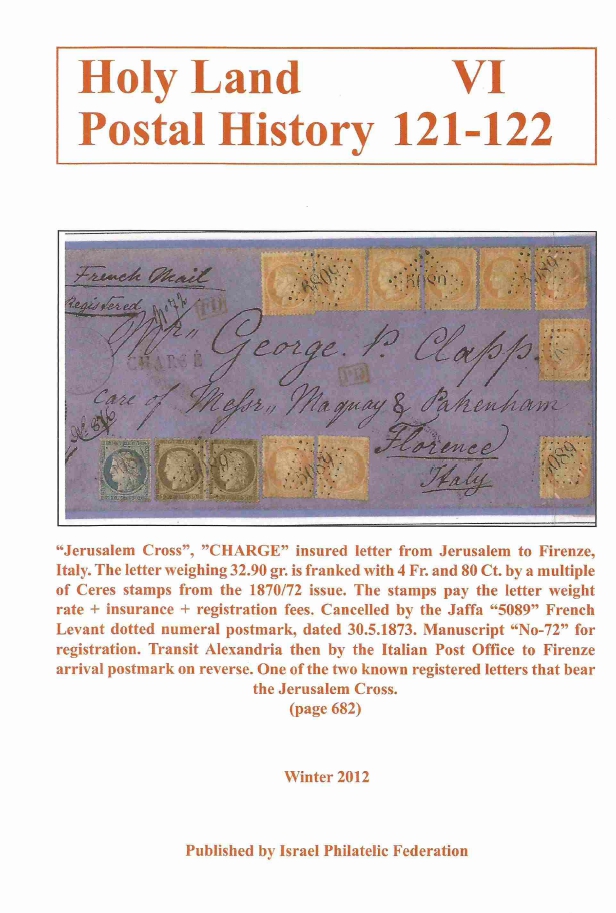 Holy Land VI
Postal History 121-122
French Mail
Registered
No 72
PD
Mr,, George. P. Clapp.
CHARGÉ
PD
care of Messr,, Maquay & Pakenham
Florence
Italy
5089 5089 5089
5089
5089 5089
“Jerusalem Cross”, ”CHARGE” insured letter from Jerusalem to Firenze,
Italy. The letter weighing 32.90 gr. is franked with 4 Fr. and 80 Ct. by a multiple
of Ceres stamps from the 1870/72 issue. The stamps pay the letter weight
rate + insurance + registration fees. Cancelled by the Jaffa “5089” French
Levant dotted numeral postmark, dated 30.5.1873. Manuscript “No-72” for
registration. Transit Alexandria then by the Italian Post Office to Firenze
arrival postmark on reverse. One of the two known registered letters that bear
the Jerusalem Cross.
(page 682)
Winter 2012
Published by Israel Philatelic Federation